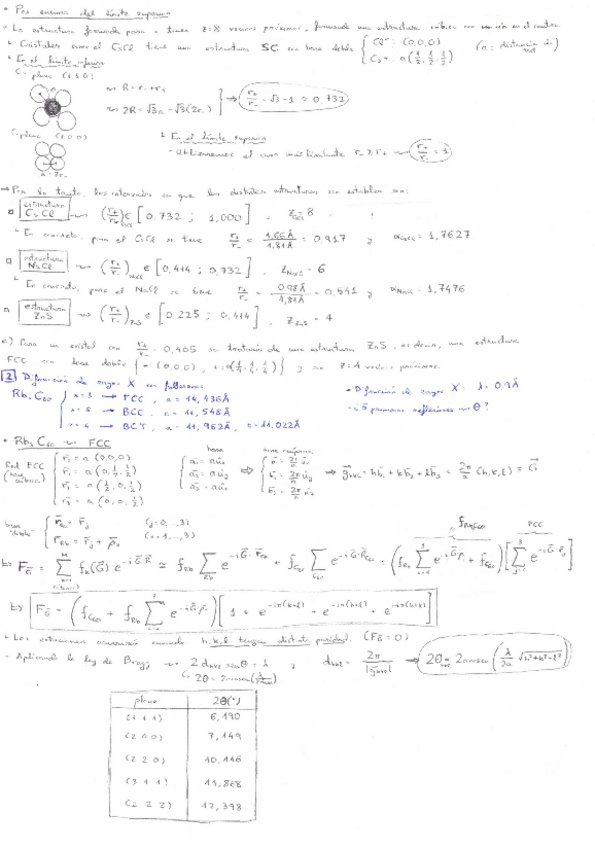 • Por encima del límite superior
- La estructura formada pasa a tener z=8 vecinos próximos, formando una estructura cúbica con un ión en el centro
Cristales como el CsCl tiene una estructura SC con base dada { Cl⁻: (0,0,0) (a = distancia de red)
Cs₊: a(1/2, 1/2, 1/2)
• En el límite inferior
plano (110)
→ 2R = √3a = √3(2r₋) } → r₊/r₋ = √3-1 = 0,732
plano (100)
a = 2r₋
En el límite superior
- Utilizaremos el caso más limitante r₋≥r₊ → r₊/r₋ = 1
→ Por lo tanto, los intervalos en que las distintas estructuras son estables son:
estructura CsCl → (r₊/r₋)CsCl ∈ [0,732 ; 1,000] , Z = 8
En concreto, para el CsCl se tiene r₊/r₋ = 1,66Å/1,81Å = 0,917 y αCsCl = 1,7627
estructura NaCl → (r₊/r₋)NaCl ∈ [0,414 ; 0,732] , ZNaCl = 6
En concreto, para el NaCl se tiene r₊/r₋ = 0,98Å/1,81Å = 0,541 y αNaCl = 1,7476
estructura ZnS → (r₊/r₋)ZnS ∈ [0,225 ; 0,414] , ZZnS = 4
c) Para un cristal con r₊/r₋ = 0,405 se trataría de una estructura ZnS, es decir, una estructura
FCC con base doble {-: (0,0,0), +: a(1/4, 1/4, 1/4)} y no z=4 vecinos próximos.
2 Difracción de rayos X en fullerenos
RbₓC₆₀ { x=3 → FCC, a = 14,436Å • Difracción de rayos X: λ=0,9Å
x=6 → BCC, a = 11,548Å • ¿5 primeras reflexiones en θ?
x=4 → BCT, a = 11,962Å, c = 11,022Å
• Rb₃C₆₀ → FCC
Red FCC (base cúbica) { r₁ = a(0,0,0)
r₂ = a(0,1/2,1/2)
r₃ = a(1/2,0,1/2)
base { a₁ = au₁
a₂ = au₂
a₃ = au₃
⇒ base recíproca { b₁ = 2π/a u₁
b₂ = 2π/a u₂
b₃ = 2π/a u₃
⇒ g_hkl = hb₁ + kb₂ + lb₃ = 2π/a (h,k,l) = G
base { r_C₆₀ = r_j (j=0,...,3)
r_Rb = r_j + ρ_α (α=1,...,3)
F_G = (f_C₆₀ + f_Rb Σ e^{-iGρ}) [1 + e^{-iπ(k+l)} + e^{-iπ(h+l)} + e^{-iπ(h+k)}]
- Las extinciones ocurrirán cuando h,k,l tengan distinta paridad. (F_G=0)
- Aplicando la ley de Bragg → 2d_hkl senθ = λ y d_hkl = 2π/|g_hkl| → 2θ = 2arcsen(λ/2a √(h²+k²+l²))
plano 2θ(°)
(1 1 1) 6,190
(2 0 0) 7,149
(2 2 0) 10,116
(3 1 1) 11,868
(2 2 2) 12,398